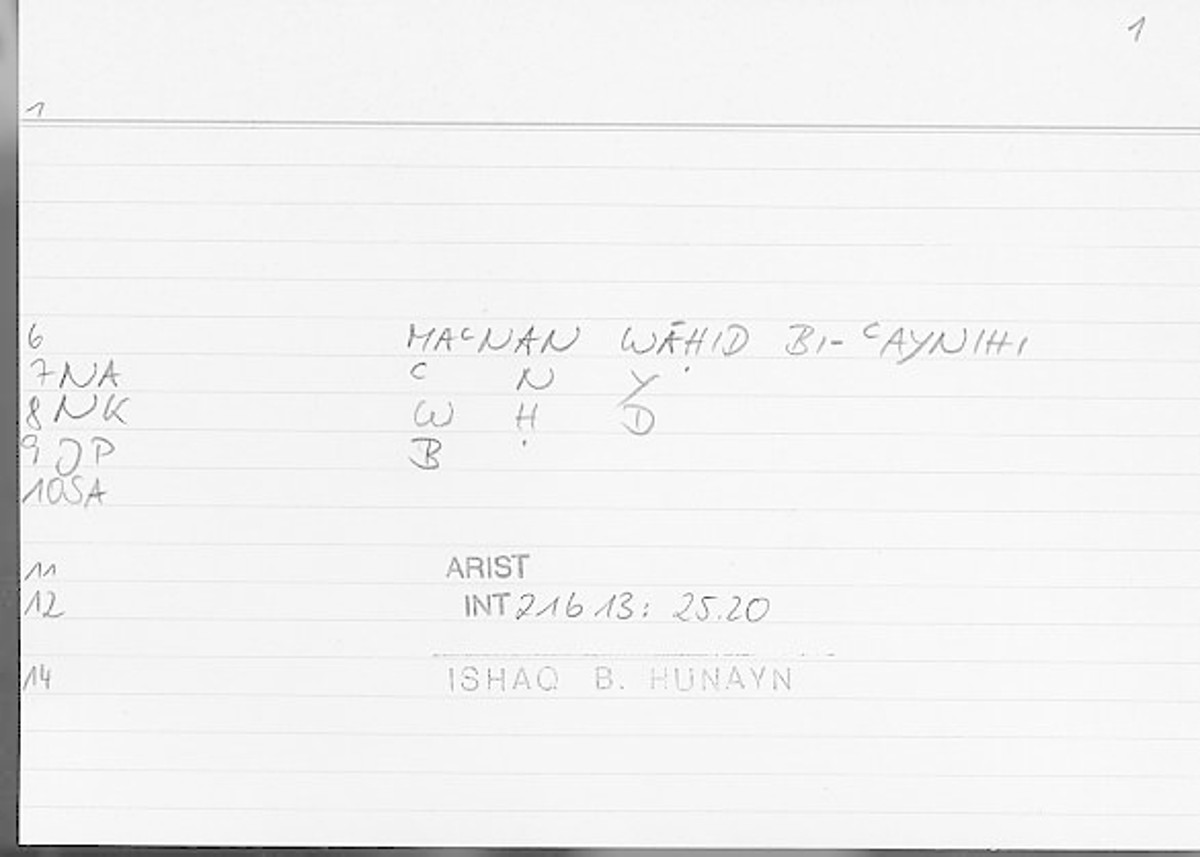 1
1
6 MAᶜNAN WĀḤID BI-ᶜAYNIHI
7NA ᶜ N Y
8NK W Ḥ D
9JP B
10SA
11 ARIST
12 INT 216 13: 25.20
14 ISHAQ B. HUNAYN